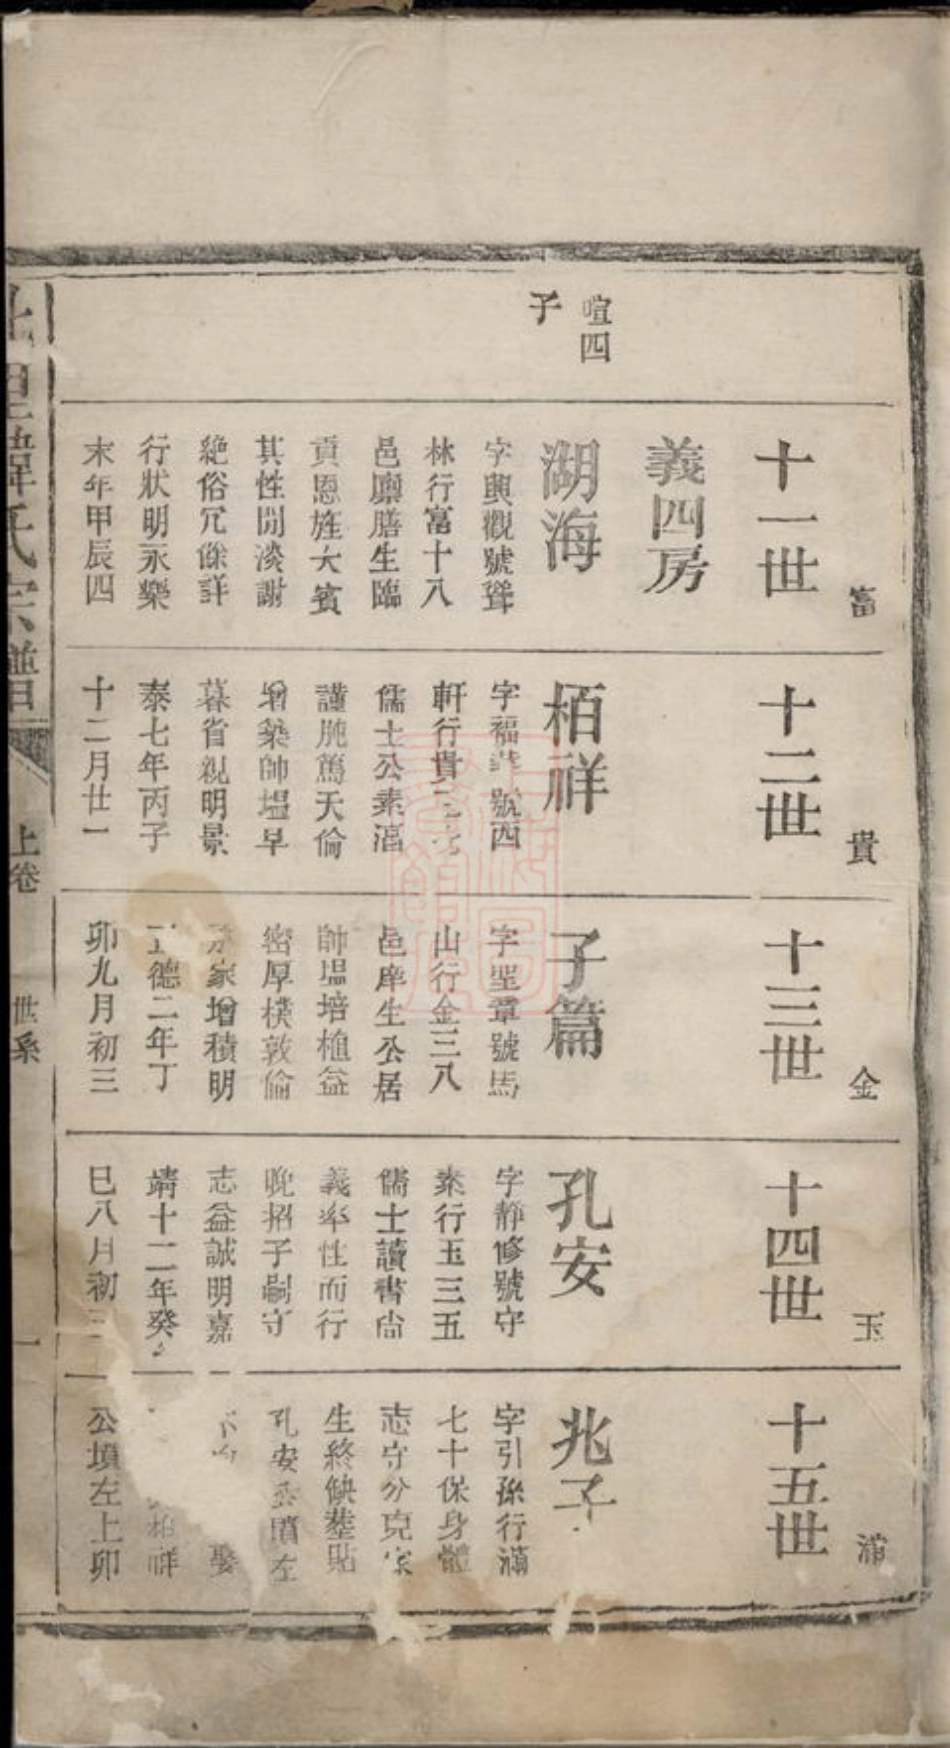 喧四
子
富
十一世
義四房
湖海
字興觀號聳
林行富十八
邑廩膳生臨
貢恩旌大賓
其性閒淡謝
絶俗冗餘詳
行狀明永樂
末年甲辰四
貴
十二世
栢祥
字福 號西
軒行貴
儒士公素
謹肫篤天倫
增築師塭早
暮省視明景
泰七年丙子
十二月廿一
金
十三世
子篇
字聖章號馬
山行金三八
邑庠生公居
師塭培植益
密厚樸敦倫
家增積明
正德二年丁
卯九月初三
玉
十四世
孔安
字靜修號守
素行玉三五
儒士讀書尙
義率性而行
晚招子嗣守
志益誠明嘉
靖十二年癸
巳八月初三
滿
十五世
兆子
字引孫行滿
七十保身體
志守分克家
生終缺塟貼
孔安公墳左
娶
栢祥
公墳左上卯
氏宗譜
上卷
世系
一